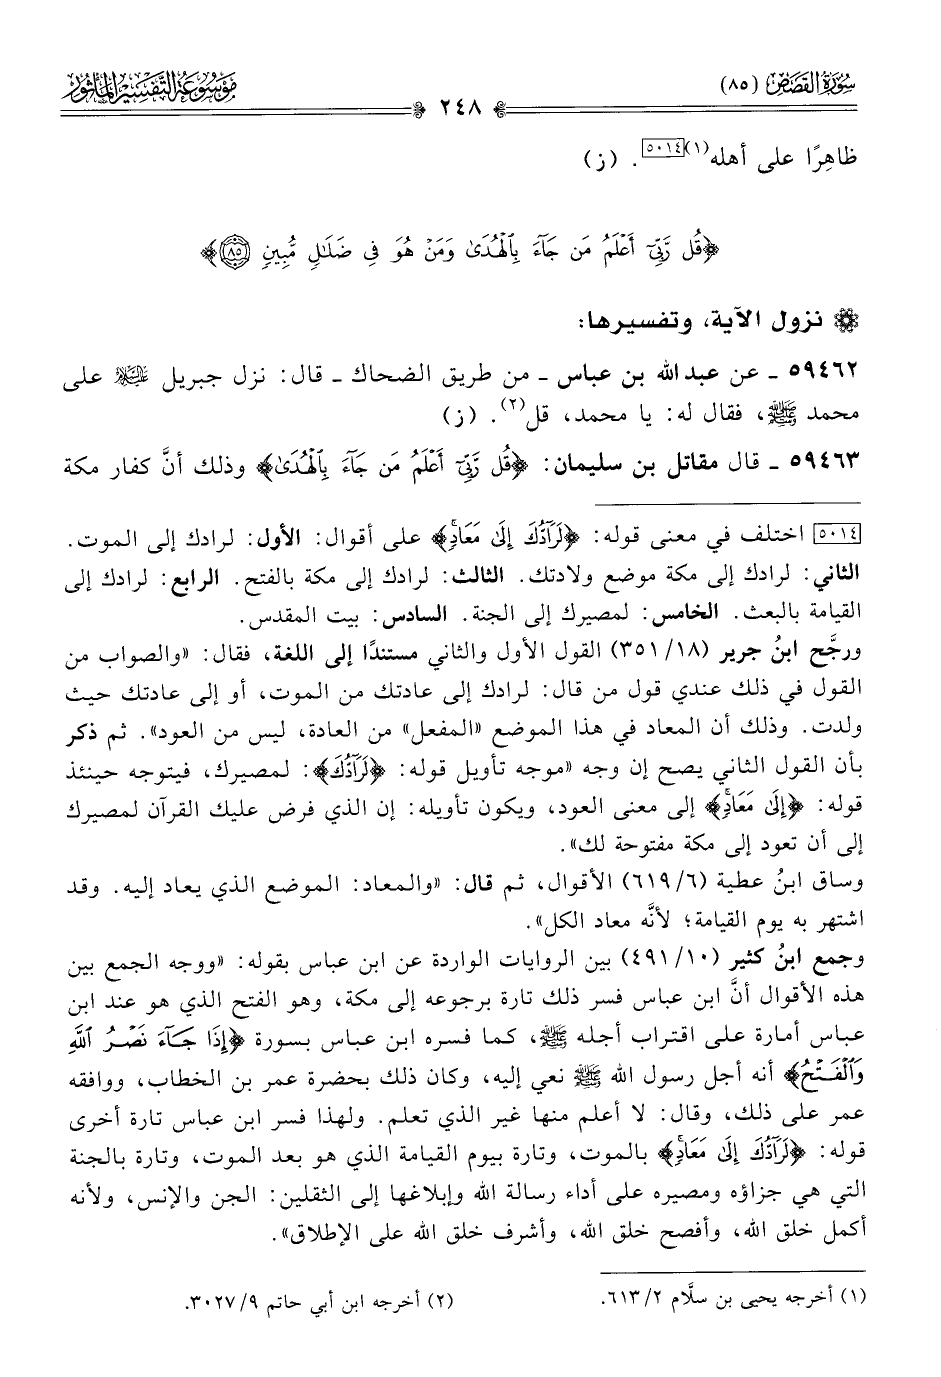 سُورَةُ القَصَصِ (٨٥)
٢٤٨
مَوْسُوعَةُ التَّفْسِيرِ المَأْثُورِ
ظاهِرًا على أهله(١)[٥٠١٤]. (ز)
﴿قُل رَّبِّىٓ أَعْلَمُ مَن جَآءَ بِٱلْهُدَىٰ وَمَنْ هُوَ فِى ضَلَـٰلٍ مُّبِينٍ ٨٥﴾
نزول الآية، وتفسيرها:
٥٩٤٦٢ ـ عن عبد الله بن عباس ـ من طريق الضحاك ـ قال: نزل جبريل عليه السلام على
محمد ﷺ، فقال له: يا محمد، قل(٢). (ز)
٥٩٤٦٣ ـ قال مقاتل بن سليمان: ﴿قُل رَّبِّىٓ أَعْلَمُ مَن جَآءَ بِٱلْهُدَىٰ﴾ وذلك أنَّ كفار مكة
[٥٠١٤] اختلف في معنى قوله: ﴿لَرَآدُّكَ إِلَىٰ مَعَادٍۚ﴾ على أقوال: الأول: لرادك إلى الموت.
الثاني: لرادك إلى مكة موضع ولادتك. الثالث: لرادك إلى مكة بالفتح. الرابع: لرادك إلى
القيامة بالبعث. الخامس: لمصيرك إلى الجنة. السادس: بيت المقدس.
ورجَّح ابنُ جرير (١٨/ ٣٥١) القول الأول والثاني مستندًا إلى اللغة، فقال: «والصواب من
القول في ذلك عندي قول من قال: لرادك إلى عادتك من الموت، أو إلى عادتك حيث
ولدت. وذلك أن المعاد في هذا الموضع «المفعل» من العادة، ليس من العود». ثم ذكر
بأن القول الثاني يصح إن وجه «موجه تأويل قوله: ﴿لَرَآدُّكَ﴾: لمصيرك، فيتوجه حينئذ
قوله: ﴿إِلَىٰ مَعَادٍۚ﴾ إلى معنى العود، ويكون تأويله: إن الذي فرض عليك القرآن لمصيرك
إلى أن تعود إلى مكة مفتوحة لك».
وساق ابنُ عطية (٦/ ٦١٩) الأقوال، ثم قال: «والمعاد: الموضع الذي يعاد إليه. وقد
اشتهر به يوم القيامة؛ لأنَّه معاد الكل».
وجمع ابنُ كثير (١٠/ ٤٩١) بين الروايات الواردة عن ابن عباس بقوله: «ووجه الجمع بين
هذه الأقوال أنَّ ابن عباس فسر ذلك تارة برجوعه إلى مكة، وهو الفتح الذي هو عند ابن
عباس أمارة على اقتراب أجله ﷺ، كما فسره ابن عباس بسورة ﴿إِذَا جَآءَ نَصْرُ ٱللَّهِ
وَٱلْفَتْحُ﴾ أنه أجل رسول الله ﷺ نعي إليه، وكان ذلك بحضرة عمر بن الخطاب، ووافقه
عمر على ذلك، وقال: لا أعلم منها غير الذي تعلم. ولهذا فسر ابن عباس تارة أخرى
قوله: ﴿لَرَآدُّكَ إِلَىٰ مَعَادٍۚ﴾ بالموت، وتارة بيوم القيامة الذي هو بعد الموت، وتارة بالجنة
التي هي جزاؤه ومصيره على أداء رسالة الله وإبلاغها إلى الثقلين: الجن والإنس، ولأنه
أكمل خلق الله، وأفصح خلق الله، وأشرف خلق الله على الإطلاق».
(١) أخرجه يحيى بن سلَّام ٢/ ٦١٣. (٢) أخرجه ابن أبي حاتم ٩/ ٣٠٢٧.